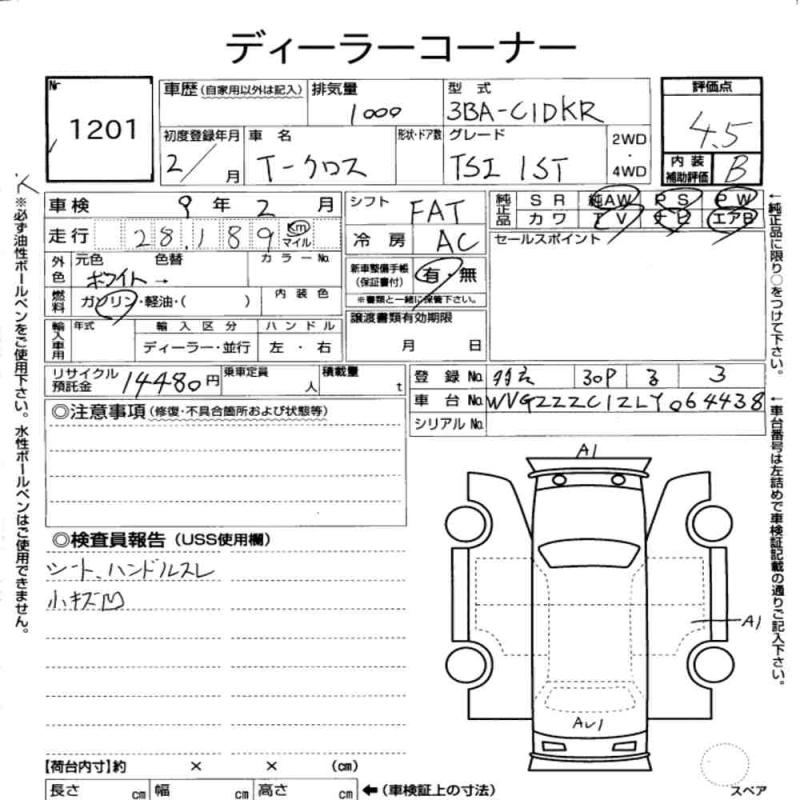 ディーラーコーナー
№ 1201
車歴 (自家用以外は記入) 排気量 1000 型式 3BA-C1DKR
評価点 4.5
初度登録年月 2/ 月 車名 T-クロス 形状・ドア数 グレード TSI 1ST 2WD・4WD
内装補助評価 B
車検 9年2月
走行 28,189 Km マイル
外色 元色 ホワイト → 色替 カラーNo.
燃料 ガソリン・軽油・( ) 内装色
輸入車用 年式 輸入区分 ディーラー・並行 ハンドル 左・右
リサイクル預託金 14480円 乗車定員 人 積載量 t
シフト FAT
冷房 AC
新車整備手帳(保証書付) 有・無
※書類と一緒に保管下さい。
譲渡書類有効期限 月 日
純正品 SR 純AW PS PW
カワ TV ナビ エアB
セールスポイント
登録No. 30P 3
車台No. WVGZZZC1ZLY064438
シリアルNo.
◎注意事項 (修復・不具合箇所および状態等)
◎検査員報告 (USS使用欄)
シート、ハンドルスレ
小キズ凹
A1
A1
AU1
スペア
【荷台内寸】約 × × (cm)
長さ cm 幅 cm 高さ cm ←(車検証上の寸法)
※必ず油性ボールペンをご使用下さい。水性ボールペンはご使用できません。
←純正品に限り○をつけて下さい。
←車台番号は左詰めで車検証記載の通りご記入下さい。